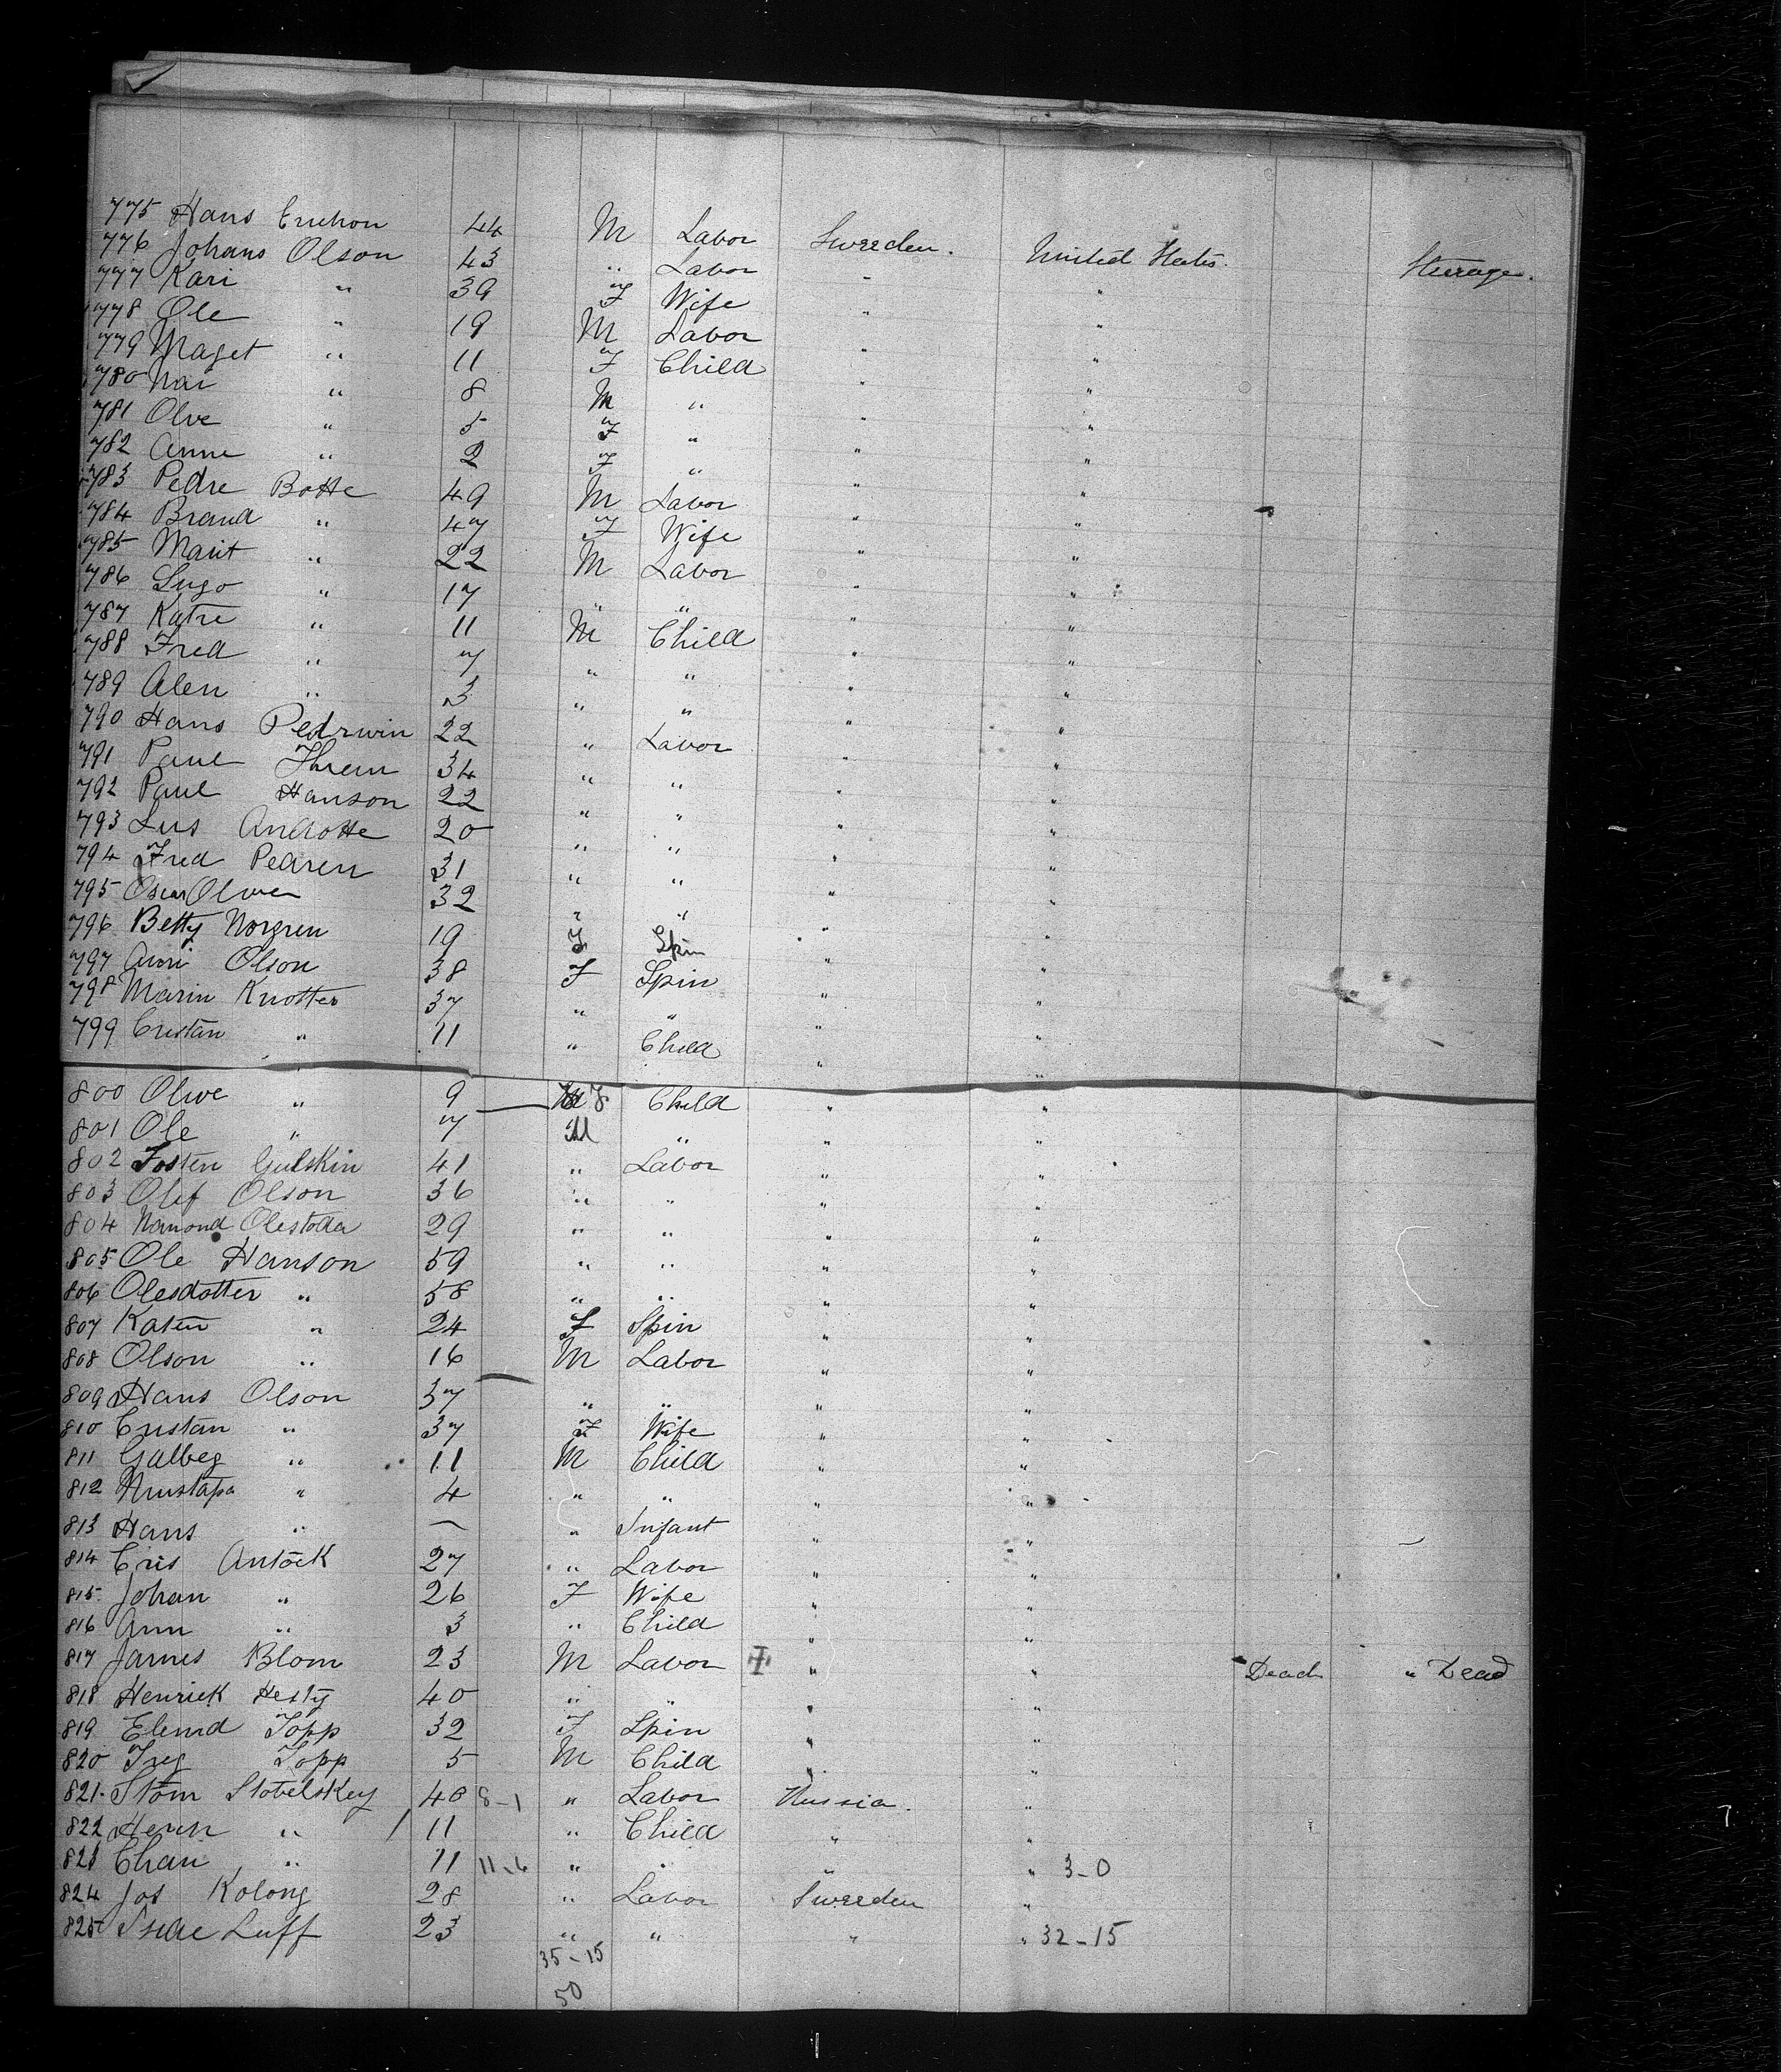 775 Hans Erickon 44 M Labor Sweeden. United States. Steerage.
776 Johans Olson 43 " Labor " "
777 Kari " 39 F Wife " "
778 Ole " 19 M Labor " "
779 Maget " 11 F Child " "
780 Nai " 8 M " " "
781 Olve " 5 F " " "
782 Anne " 2 F " " "
783 Pedre Botte 49 M Labor " "
784 Brand " 47 F Wife " "
785 Marit " 22 M Labor " "
786 Lugo " 17 " " " "
787 Katre " 11 M Child " "
788 Fred " 7 " " " "
789 Alen " 3 " " " "
790 Hans Pedrwin 22 " Labor " "
791 Paul Threm 34 " " " "
792 Paul Hanson 22 " " " "
793 Lus Andotte 20 " " " "
794 Fred Pedren 31 " " " "
795 Oscar Olwen 32 " " " "
796 Betty Norgren 19 F Spin " "
797 Anni Olson 38 F Spin " "
798 Marin Knotter 37 " " " "
799 Cristan " 11 " Child " "
800 Olive " 9 F Child " "
801 Ole " 7 M " " "
802 Fosten Gulskin 41 " Labor " "
803 Olef Olson 36 " " " "
804 Namond Olestotta 29 " " " "
805 Ole Hanson 59 " " " "
806 Olesdotter " 58 " " " "
807 Katen " 24 F Spin " "
808 Olson " 16 M Labor " "
809 Hans Olson 37 " " " "
810 Cristan " 37 F Wife " "
811 Galbeg " 11 M Child " "
812 Mustapa " 4 " " " "
813 Hans " — " Infant " "
814 Cris Antock 27 " Labor " "
815 Johan " 26 F Wife " "
816 Ann " 3 " Child " "
817 James Blom 23 M Labor " " Dead " Dead
818 Henrick Hesty 40 " " " "
819 Elemd Topp 32 F Spin " "
820 Treg Topp 5 M Child " "
821 Stom Stobelskey 40 8-1 " Labor Russia. "
822 Hersh " 11 " Child " "
823 Chan " 11 11-6 " " " " 3-0
824 Jos Kolong 28 " Labor Sweeden "
825 Luff 23 " " " " 32-15
35-15
50